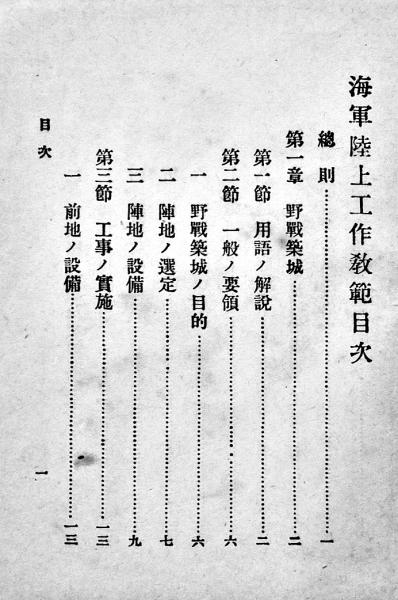 海軍陸上工作敎範目次
總則……一
第一章 野戰築城……二
第一節 用語ノ解說……二
第二節 一般ノ要領……六
一 野戰築城ノ目的……六
二 陣地ノ選定……七
三 陣地ノ設備……九
第三節 工事ノ實施……一三
一 前地ノ設備……一三
目次
一